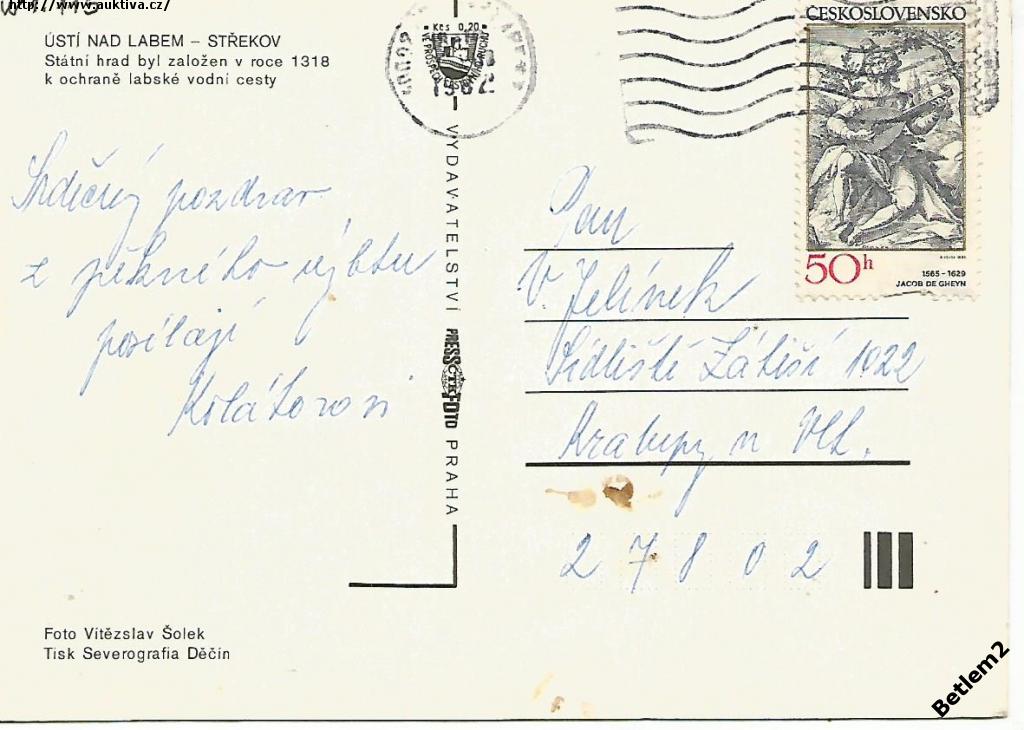 http://www.auktiva.cz/
ÚSTÍ NAD LABEM – STŘEKOV
Státní hrad byl založen v roce 1318
k ochraně labské vodní cesty
Srdečný pozdrav
z pěkného výletu
posílají
Kolátorovi
VYDAVATELSTVÍ PRESSFOTO PRAHA
ČTK
Kčs 0,20
ČESKOSLOVENSKO
50h
1565–1629
JACOB DE GHEYN
Pan
V. Jelínek
Sídliště Zátiší 1022
Kralupy n Vlt.
27802
Foto Vítězslav Šolek
Tisk Severografia Děčín
Betlem2